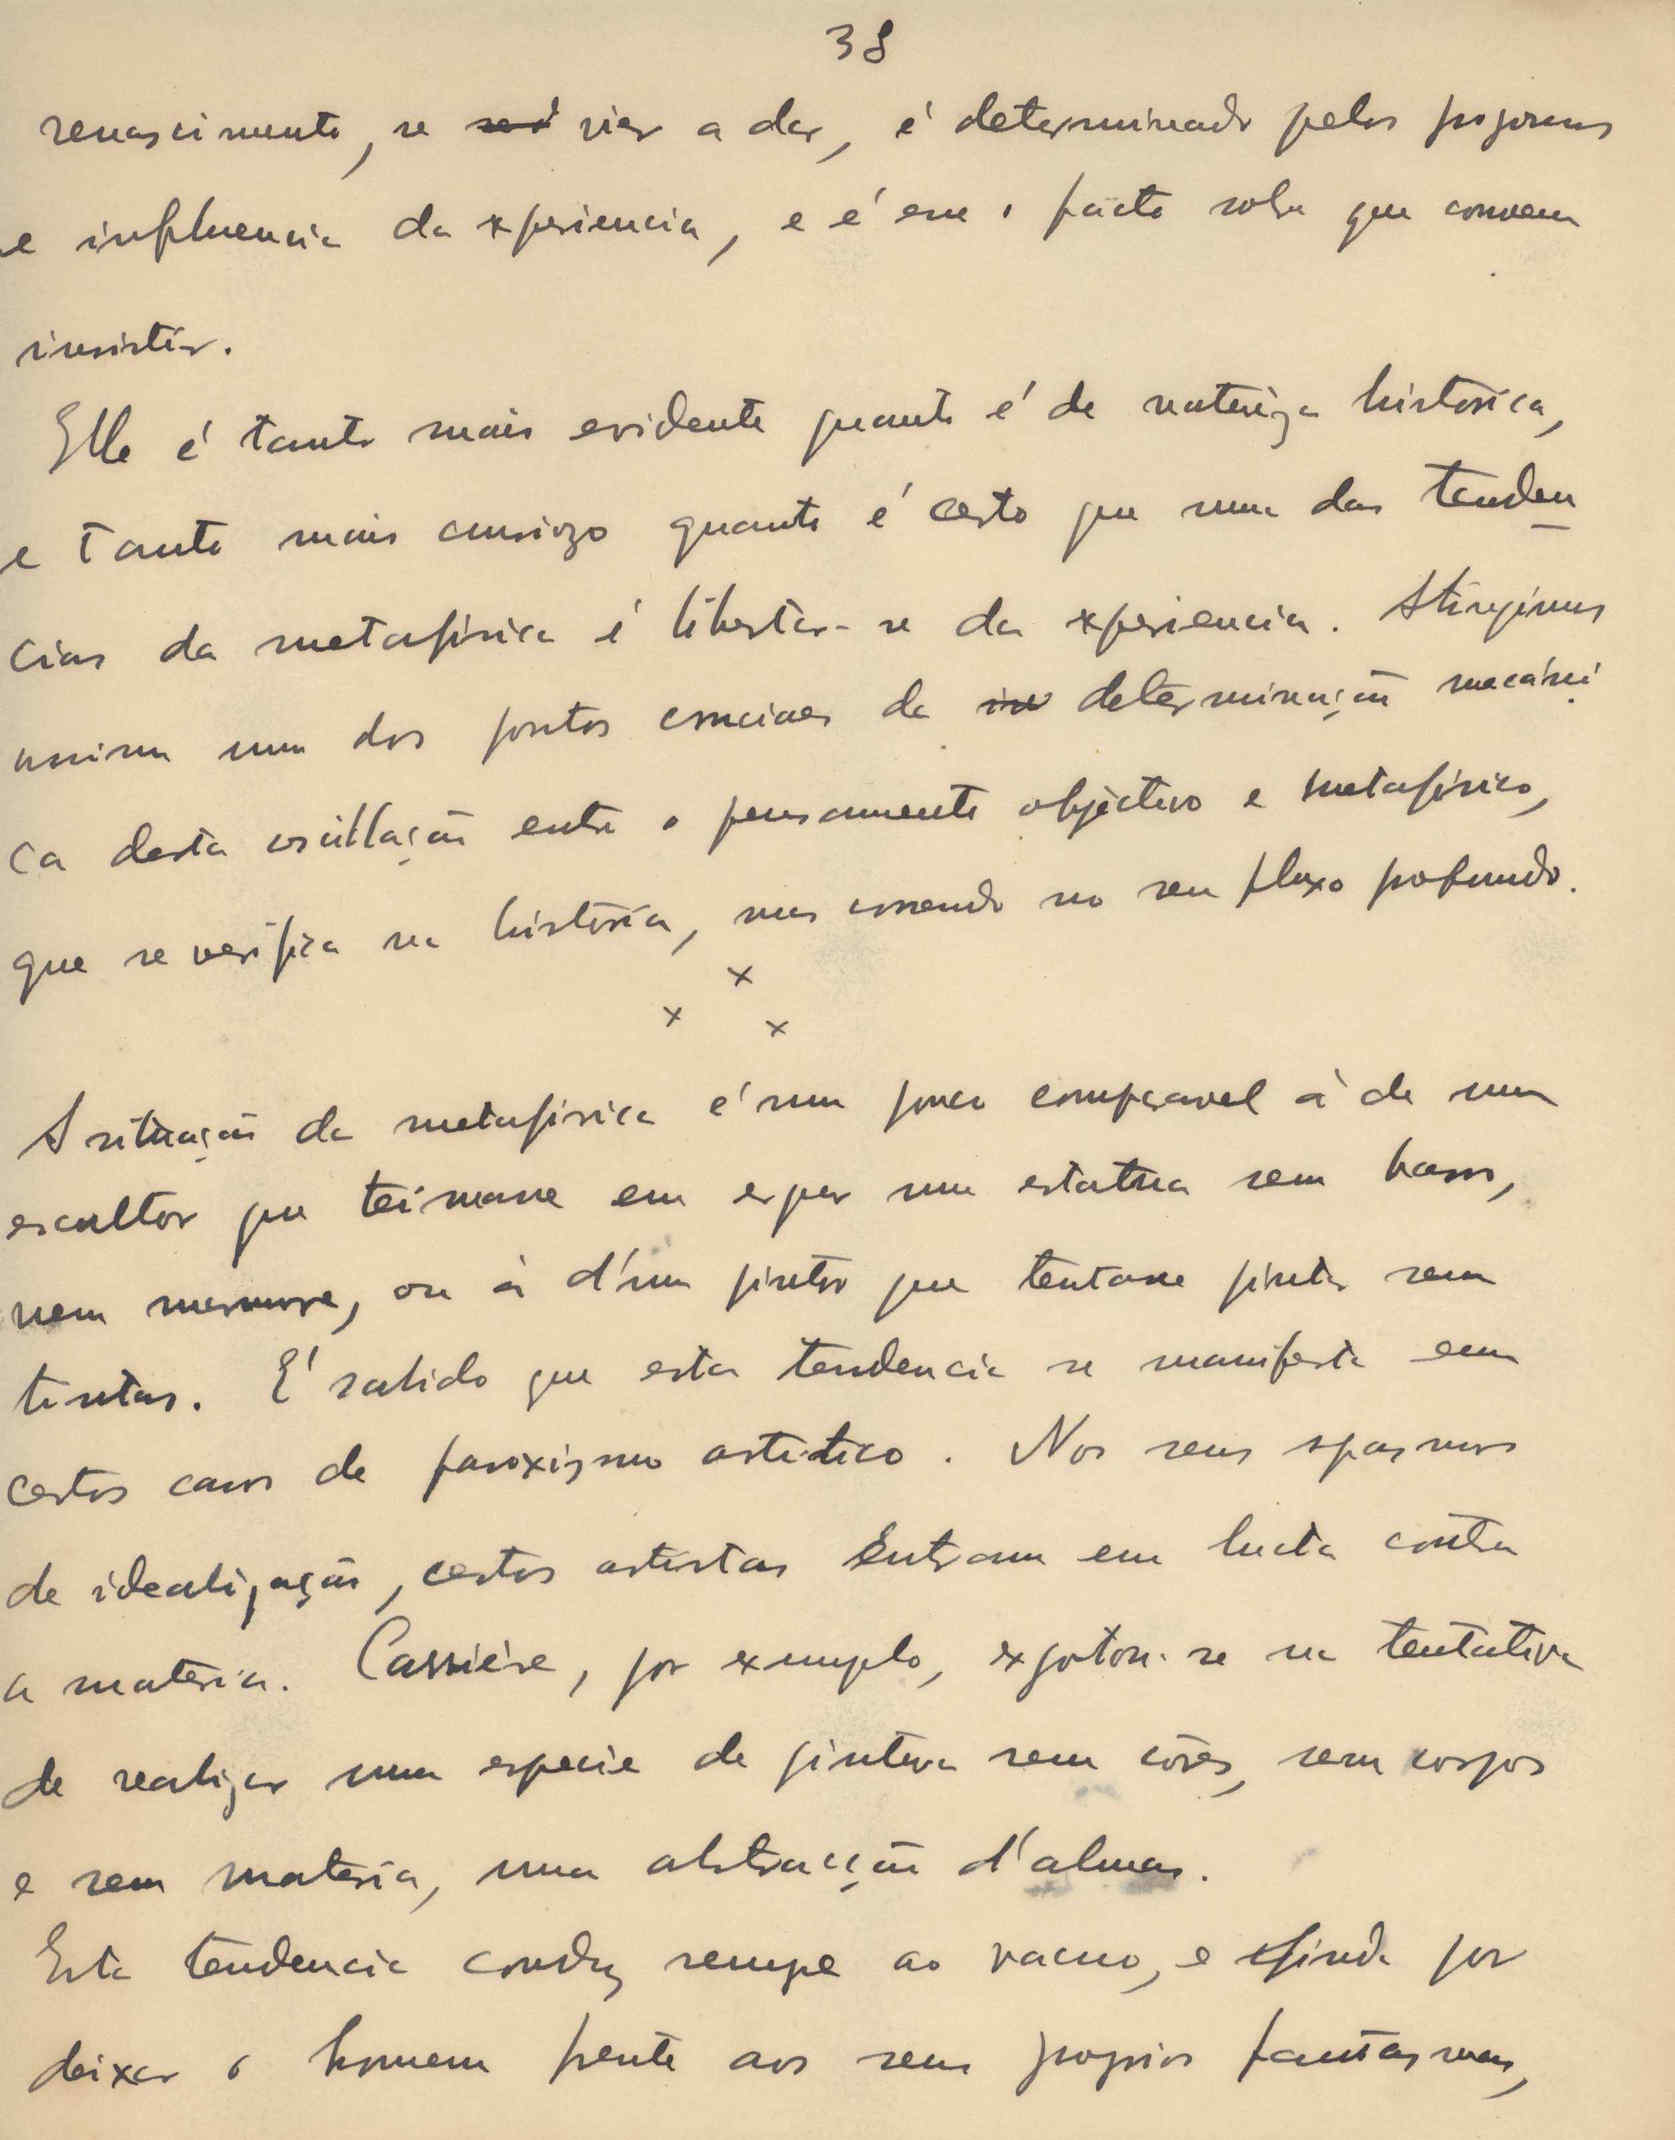 38
renascimento, se vier a dar, é determinado pelos progressos
e influencia da experiencia, e é esse o facto sobre que convem
insistir.
Elle é tanto mais evidente quanto é de natureza historica,
e tanto mais curiozo quanto é certo que uma das tenden
cias da metafisica é libertar-se da experiencia. Atingimos
assim um dos pontos cruciaes da determinação mecáni
ca desta oscillação entre o pensamento objectivo e metafisico,
que se verifica na historia, mas correndo no seu fluxo profundo.
x
x x
A situação da metafisica é um pouco comparavel à de um
escultor que teimasse em erguer uma estatua sem barro,
nem marmore, ou à d'um pintor que tentasse pintar sem
tintas. É sabido que esta tendencia se manifesta em
certos casos de paroxismo artistico. Nos seus espasmos
de idealização, certos artistas entram em lucta contra
a materia. Carrière, por exemplo, exgotou-se na tentativa
de realizar uma especie de pintura sem côres, sem corpos
e sem materia, uma abstracção d'almas.
Esta tendencia conduz sempre ao vacuo, e finda por
deixar o homem frente aos seus proprios fantasmas,